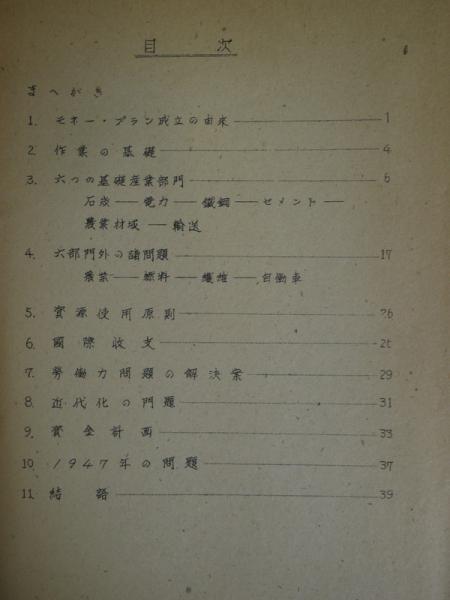 目 次
まへがき
1. モネー・プラン成立の由来 1
2. 作業の基礎 4
3. 六つの基礎産業部門 6
石炭 — 電力 — 鐵鋼 — セメント —
農業材域 — 輸送
4. 六部門外の諸問題 17
農業 — 燃料 — 繊維 — 自働車
5. 資源使用原則 26
6. 國際收支 26
7. 勞働力問題の解決案 29
8. 近代化の問題 31
9. 資金計画 33
10. 1947年の問題 37
11. 結語 39